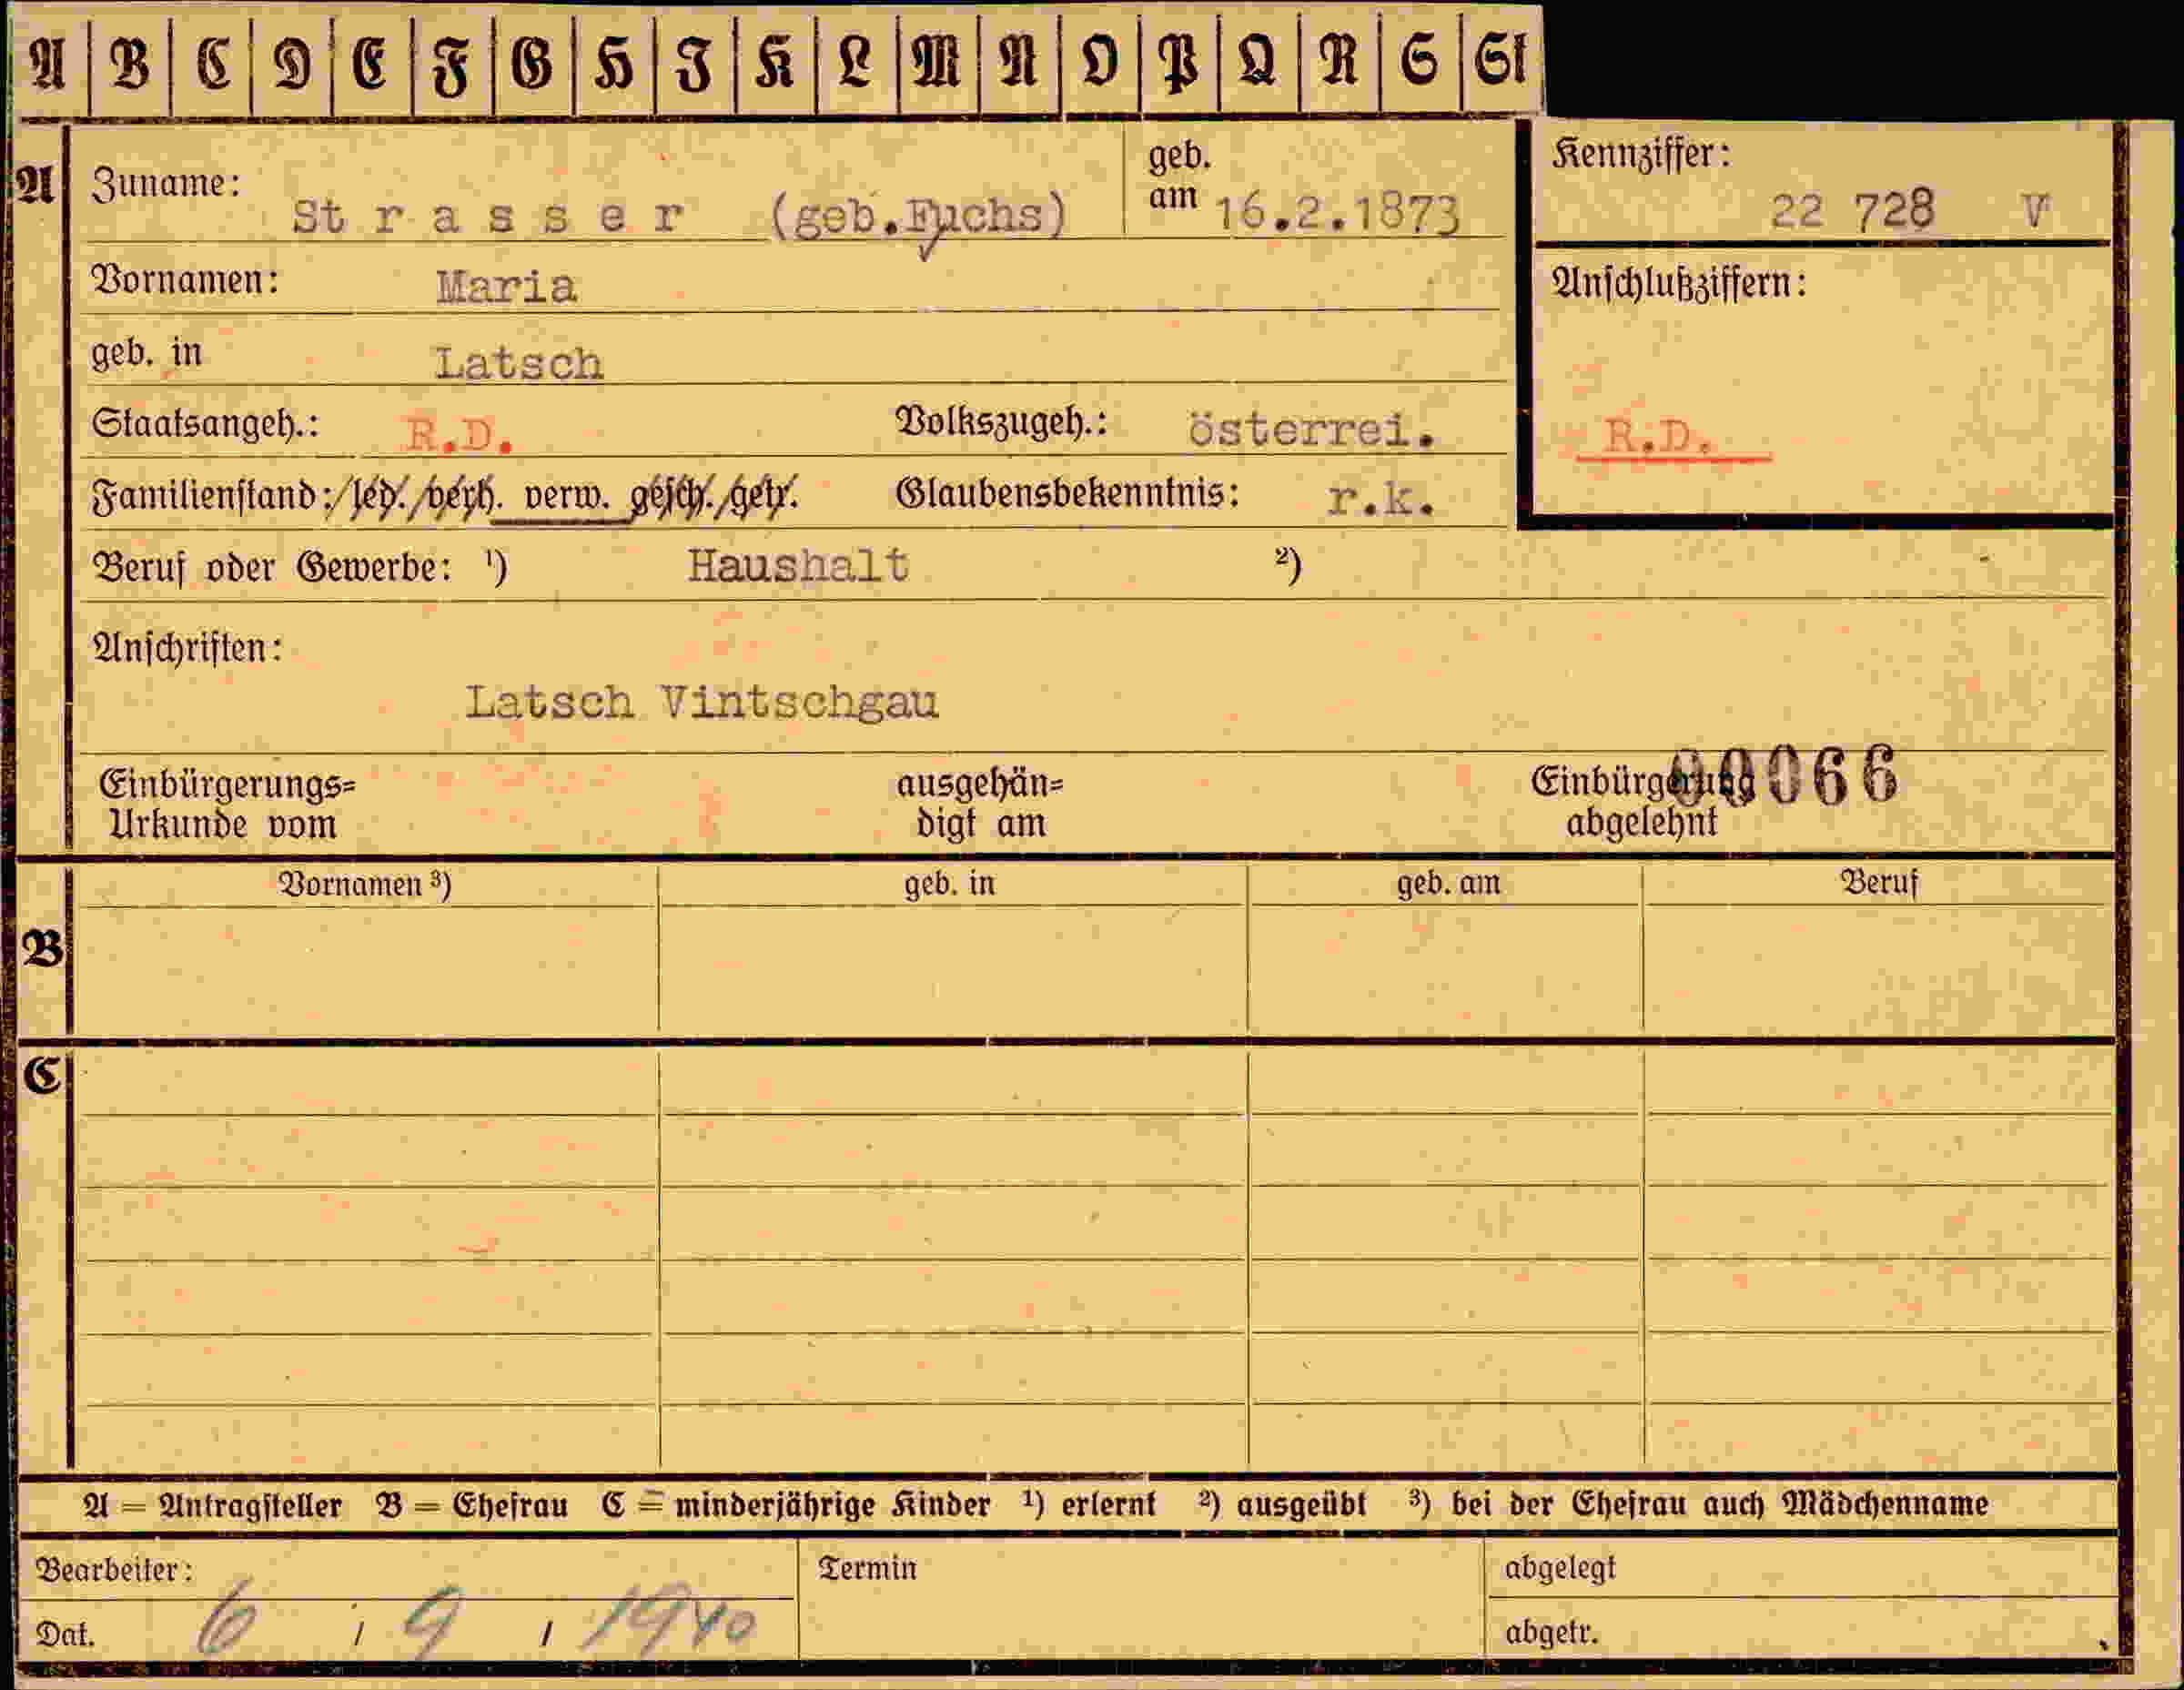 A B C D E F G H I K L M N O P Q R S St
A Zuname: St r a s s e r (geb.Fuchs) geb. am 16.2.1873
Kennziffer: 22 728 V
Vornamen: Maria
Anschlußziffern:
geb. in Latsch
Staatsangeh.: R.D. Volkszugeh.: österrei.
R.D.
Familienstand: led. verh. verw. gesch. getr. Glaubensbekenntnis: r.k.
Beruf oder Gewerbe: ¹) Haushalt ²)
Anschriften:
Latsch Vintschgau
Einbürgerungs= ausgehän= Einbürgerung 00066
Urkunde vom digt am abgelehnt
Vornamen ³) geb. in geb. am Beruf
B
C
A = Antragsteller B = Ehefrau C = minderjährige Kinder ¹) erlernt ²) ausgeübt ³) bei der Ehefrau auch Mädchenname
Bearbeiter: Termin abgelegt
Dat. 6 / 9 / 1940 abgetr.